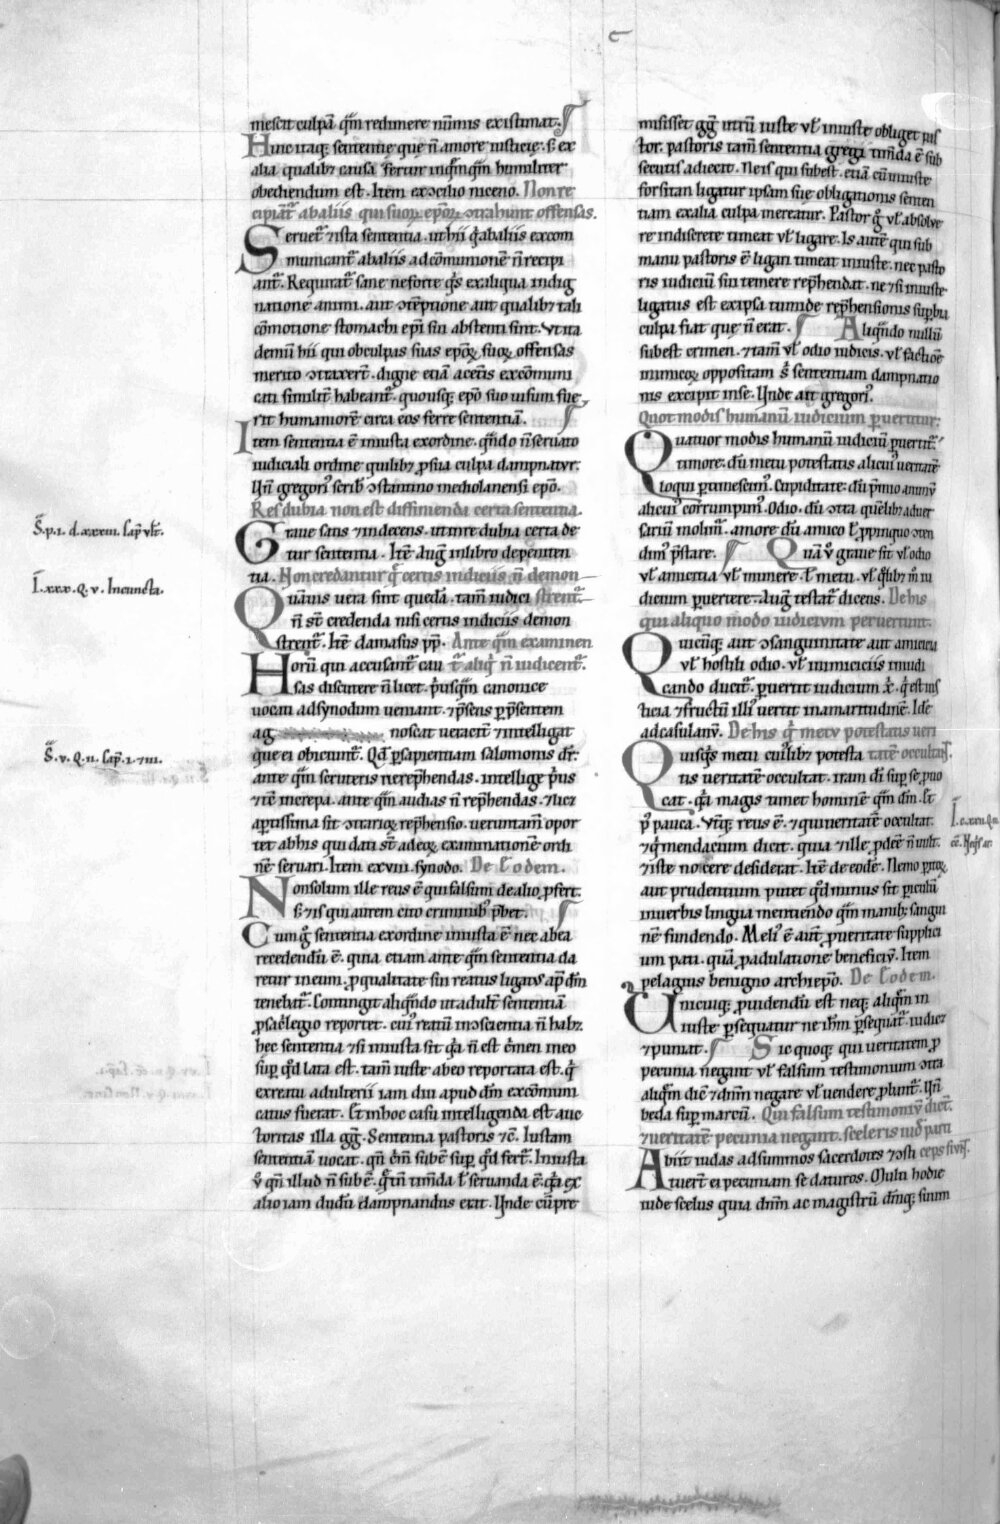 mescit culpā quā redimere nimis existimat.
Hinc itaq; sententię quę n̄ amore iusticię. s; ex
alia qualib; causa fertur in quēquā humiliter
obediendum est. Item ex ɔcilio niceno. Non re
cipiāt̄ ab aliis qui suoꝝ ep̄oꝝ ɔtrahunt offensas.
Seruet̄ ⁊ ista sententia. ut hii q̇ ab aliis excom
municant̄ ab aliis ad cōmunionē n̄ recipi
ant̄. Requirat̄ sane ne forte q̇s ex aliqua indig
natione animi. aut ɔtēptione aut qualib; tali
cōmotione stomachi ep̄i sin abstenti sint. Vt ita
demū hii qui ob culpas suas ep̄oꝝ suoꝝ offensas
merito ɔtraxer̄t. digne etiā a cet̄is excōmuni
cati similit̄ habeant̄. quousq; ep̄o suo uisum fue
rit humaniorē circa eos ferre sententiā.
Item sententia ē iniusta ex ordine. qn̄do n̄ seruato
iudiciali ordine quilib; ꝑ sua culpa dampnatur.
Vn̄ gregori᾿ scrib̄ ɔstantino mediolanensi ep̄o.
Res dubia non est diffinienda certa sententia.
Graue satis ⁊ indecens. ut in re dubia certa de
tur sententia. Itē Aug̅ in libro de peniten
tia. Non credantur q̄ certis indiciis n̄ demon
Quāuis uera sint quedā. tam̄ iudici strent̄.
n̄ st̄ credenda nisi certis indiciis demon
strent̄. Itē damasus pp̄. Ante quā examinen
Horū qui accusant̄ cau t̄ aliq̇ n̄ iudicent̄.
sas discutere n̄ licet. p̄usquā canonice
uocati ad synodum ueniant. ⁊ p̄sens ꝑ p̄sentem
ag noscat ueracit̄ ⁊ intelligat
que ei obiciunt̄. Qd̄ ꝑ sapientiam salomonis dr̄.
ante quā scruteris ne rep̄hendas. intellige p̄us
⁊ tē increpa. ante quā audias n̄ rep̄hendas. ⁊ lic;
aꝑtissima sit ɔtrarioꝝ rep̄hensio. ueruntam̄ opor
tet ab his qui dati st̄ ad eoꝝ examinatione ordi
nē seruari. Item ex viii. synodo. De Eodem.
Non solum ille reus ē qui falsum de alio ꝓfert.
s; ⁊ is qui aurem cito criminib᾿ p̄bet.
Cum g̊ sententia ex ordine iniusta ē nec ab ea
recedendū ē. quia etiam ante quā sententia da
retur in eum. ꝓ qualitate sui reatus ligatus ap̄ dm̄
tenebat̄. Contingit aliqn̄do ut adult̄ sententiā
ꝓ sac̄legio reportet. cui᾿ reatū in ɔscientia n̄ hab;
hec sententia ⁊ si iniusta sit q̇a n̄ est c̄men in eo
suꝑ qd̄ lata est. tam̄ iuste ab eo reportata est. q̇
ex reatu adulterii iam diu apud dm̄ excōmuni
catus fuerat. Et in hoc casu intelligenda est auc
toritas illa gg̅. Sententia pastoris ⁊c̄. Iustam
sententiā uocat. qn̄ c̄m subē suꝑ qd̄ fert̄. Iniusta
ů qn̄ illud n̄ subē. q̄ tn̄ timēda t̄ seruanda ē. q̇a ex
alio iam dudū dampnandus erat. Vnde cū pre
misisset gg̅ utrū iuste ul̄ iniuste obliget pas
tor. pastoris tam̄ sententia gregi timēda ē sub
secutus adiecit. Ne is qui subest. etiā cū iniuste
forsitan ligatur ipsam suę obligationis senten
tiam ex alia culpa mereatur. Pastor g̊ ul̄ absolue
re indiscrete timeat ul̄ ligare. Is autē qui sub
manu pastoris ē ligari timeat iniuste. nec pasto
ris iudiciū sui temere rep̄hendat. ne ⁊ si iniuste
ligatus est ex ipsa tumide rep̄hensionis suꝑbia
culpa fiat que n̄ erat. Aliqn̄do nullū
subest crimen. ⁊ tam̄ ul̄ odio iudicis. ul̄ factiōe
inimicoꝝ oppositam s̄ sententiam dampnatio
nis excipit in se. Vnde ait gregori᾿.
Quot modis humanū iudicium ꝑuertitur.
Quatuor modis humanū iudiciū ꝑuertit̄.
timore. dū metu potestatis alicui᾿ ueritatē
loqui ꝑtimescim᾿. Cupiditate. dū p̄mio animū
alicui᾿ corrumpim᾿. Odio. dū ɔtra quēlib; aduer
sariū molim̄. amore dū amico t̄ ꝓpinquo ɔten
dim᾿ p̄stare. Quāu᾿ graue sit ul̄ odio
ul̄ amicitia ul̄ munere. t̄ metu. ul̄ q̊lib; m̊ iu
dicium ꝑuertere. Aug̅ testat̄ dicens. De his
qui aliquo modo iudicium peruertunt.
Quicūq; aut ɔsanguinitate aut amicicia
ul̄ hostili odio. ul̄ inimiciciis iniudi
cando ducit̄. ꝑuertit iudicium x̄. q̇ est ius
ticia ⁊ fructū illi᾿ uertit in amaritudinē. Idē
ad casulanū. De his q̇ metu potestatis ueri
Quisq̇s metu cuiuslib; potesta tatē occultaɴ̄t.
tis ueritatē occultat. iram di suꝑ se ꝓuo
cat. q̇a magis timet hominē quā dm̄. Et
p᾿ pauca. Vt̄q; reus ē. ⁊ qui ueritatē occultat.
⁊ q̇ mendacium dicit. quia ⁊ ille ꝓdeē n̄ uult.
⁊ iste nocere desiderat. Itē de eodē. Nemo ꝑitoꝝ
aut prudentium putet qd̄ minus sit ꝑiculū
in uerbis lingua mentiendo quā manib; sangui
nē fundendo. Meli᾿ ē aut̄ ꝓ ueritate supplici
um pati. quā ꝓ adulatione beneficiū. Item
pelagius benigno archiep̄o. De Eodem.
Vnicuiq; ꝓuidendū est neq; aliquā in
iuste ꝑsequatur ne ih̄m ꝑsequat̄. iudic;
⁊ puniat. Sic quoq; qui ueritatem ꝓ
pecunia negant ul̄ falsum testimonium ɔtra
aliquā dicē ⁊ dn̄m negare ul̄ uendere ꝓbunt̄. Vn̄
beda suꝑ marcū. Qui falsum testimoniū dict̄.
⁊ ueritatē pecunia negant. sceleris iud̄ parti
Abiit iudas ad summos sacerdotes ⁊ ɔsti ceps fiunt̄.
tuer̄t ei pecuniam se daturos. Multi hodie
iude scelus quia dn̄m ac magistrū dm̄q; suum
S̄. p. i. d. xxxiii. Cap̄ ult̄.
I. xxx. Q. v. Incuncta.
S̄. v. Q. ii. Cap̄. i. ⁊ iii.